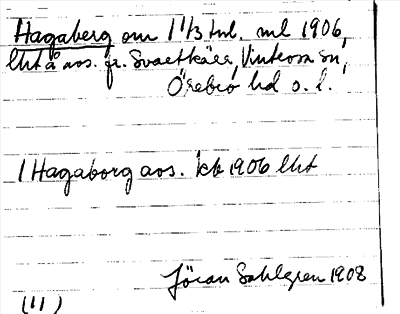 Hagaberg om 1 1/3 tnl. ml 1906,
lht å avs. fr. Svartkärr, Vintrosa sn,
Örebro hd o. l.
/ Hagaborg avs. kb 1906 lht
Jöran Sahlgren 1908
(11)